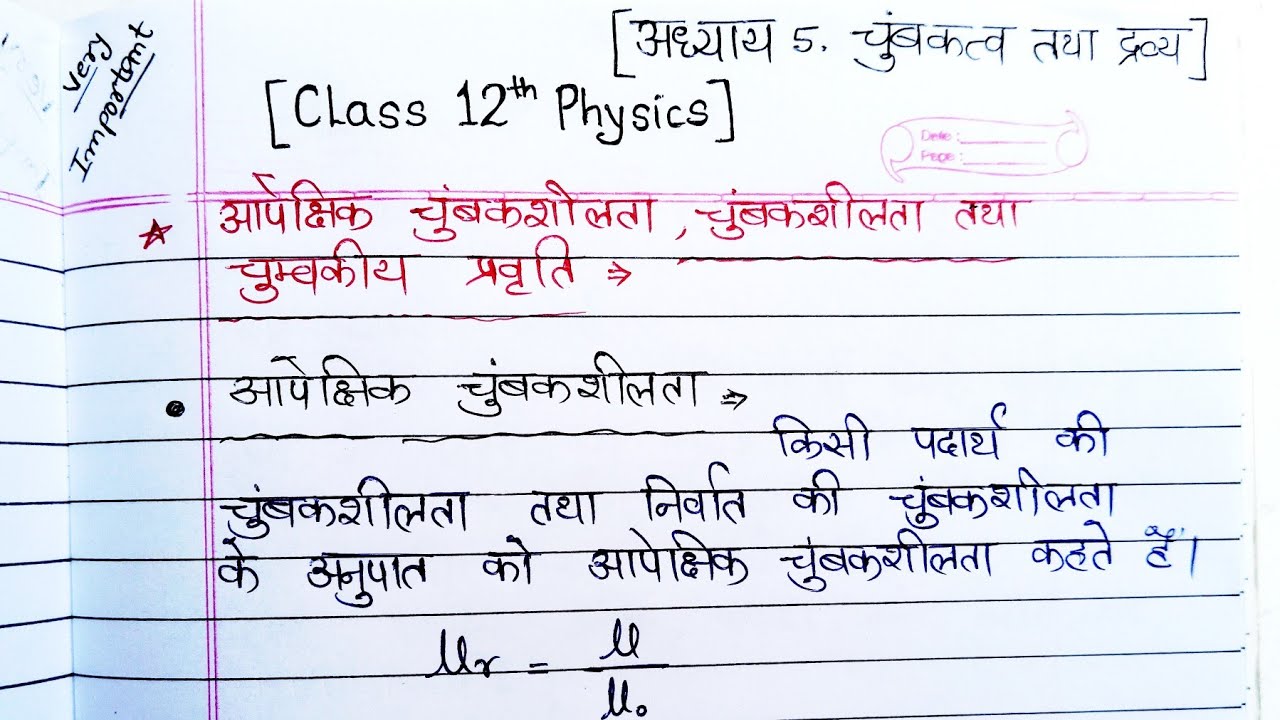 Very
Important
[अध्याय 5. चुंबकत्व तथा द्रव्य]
[Class 12th Physics]
Date :
Page :
आपेक्षिक चुंबकशीलता, चुंबकशीलता तथा
चुम्बकीय प्रवृति ⇒
आपेक्षिक चुंबकशीलता ⇒
किसी पदार्थ की
चुंबकशीलता तथा निर्वात की चुंबकशीलता
के अनुपात को आपेक्षिक चुंबकशीलता कहते हैं।
μr = μ / μ₀